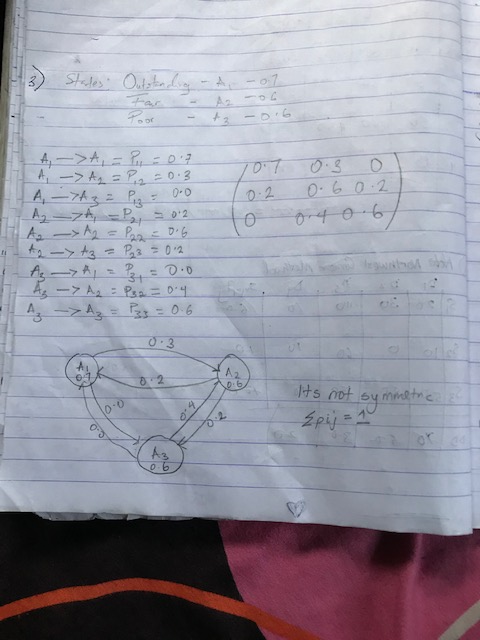 3) States: Outstanding - A1 - 0.7
Fair - A2 - 0.6
Poor - A3 - 0.6
A1 —> A1 = P11 = 0.7
A1 —> A2 = P12 = 0.3
A1 —> A3 = P13 = 0.0
A2 —> A1 = P21 = 0.2
A2 —> A2 = P22 = 0.6
A2 —> A3 = P23 = 0.2
A3 —> A1 = P31 = 0.0
A3 —> A2 = P32 = 0.4
A3 —> A3 = P33 = 0.6
0.7 0.3 0
0.2 0.6 0.2
0 0.4 0.6
0.3
A1
0.7
A2
0.6
0.2
0.0
0.0
0.4
0.2
A3
0.6
Its not symmetric
Σpij = 1